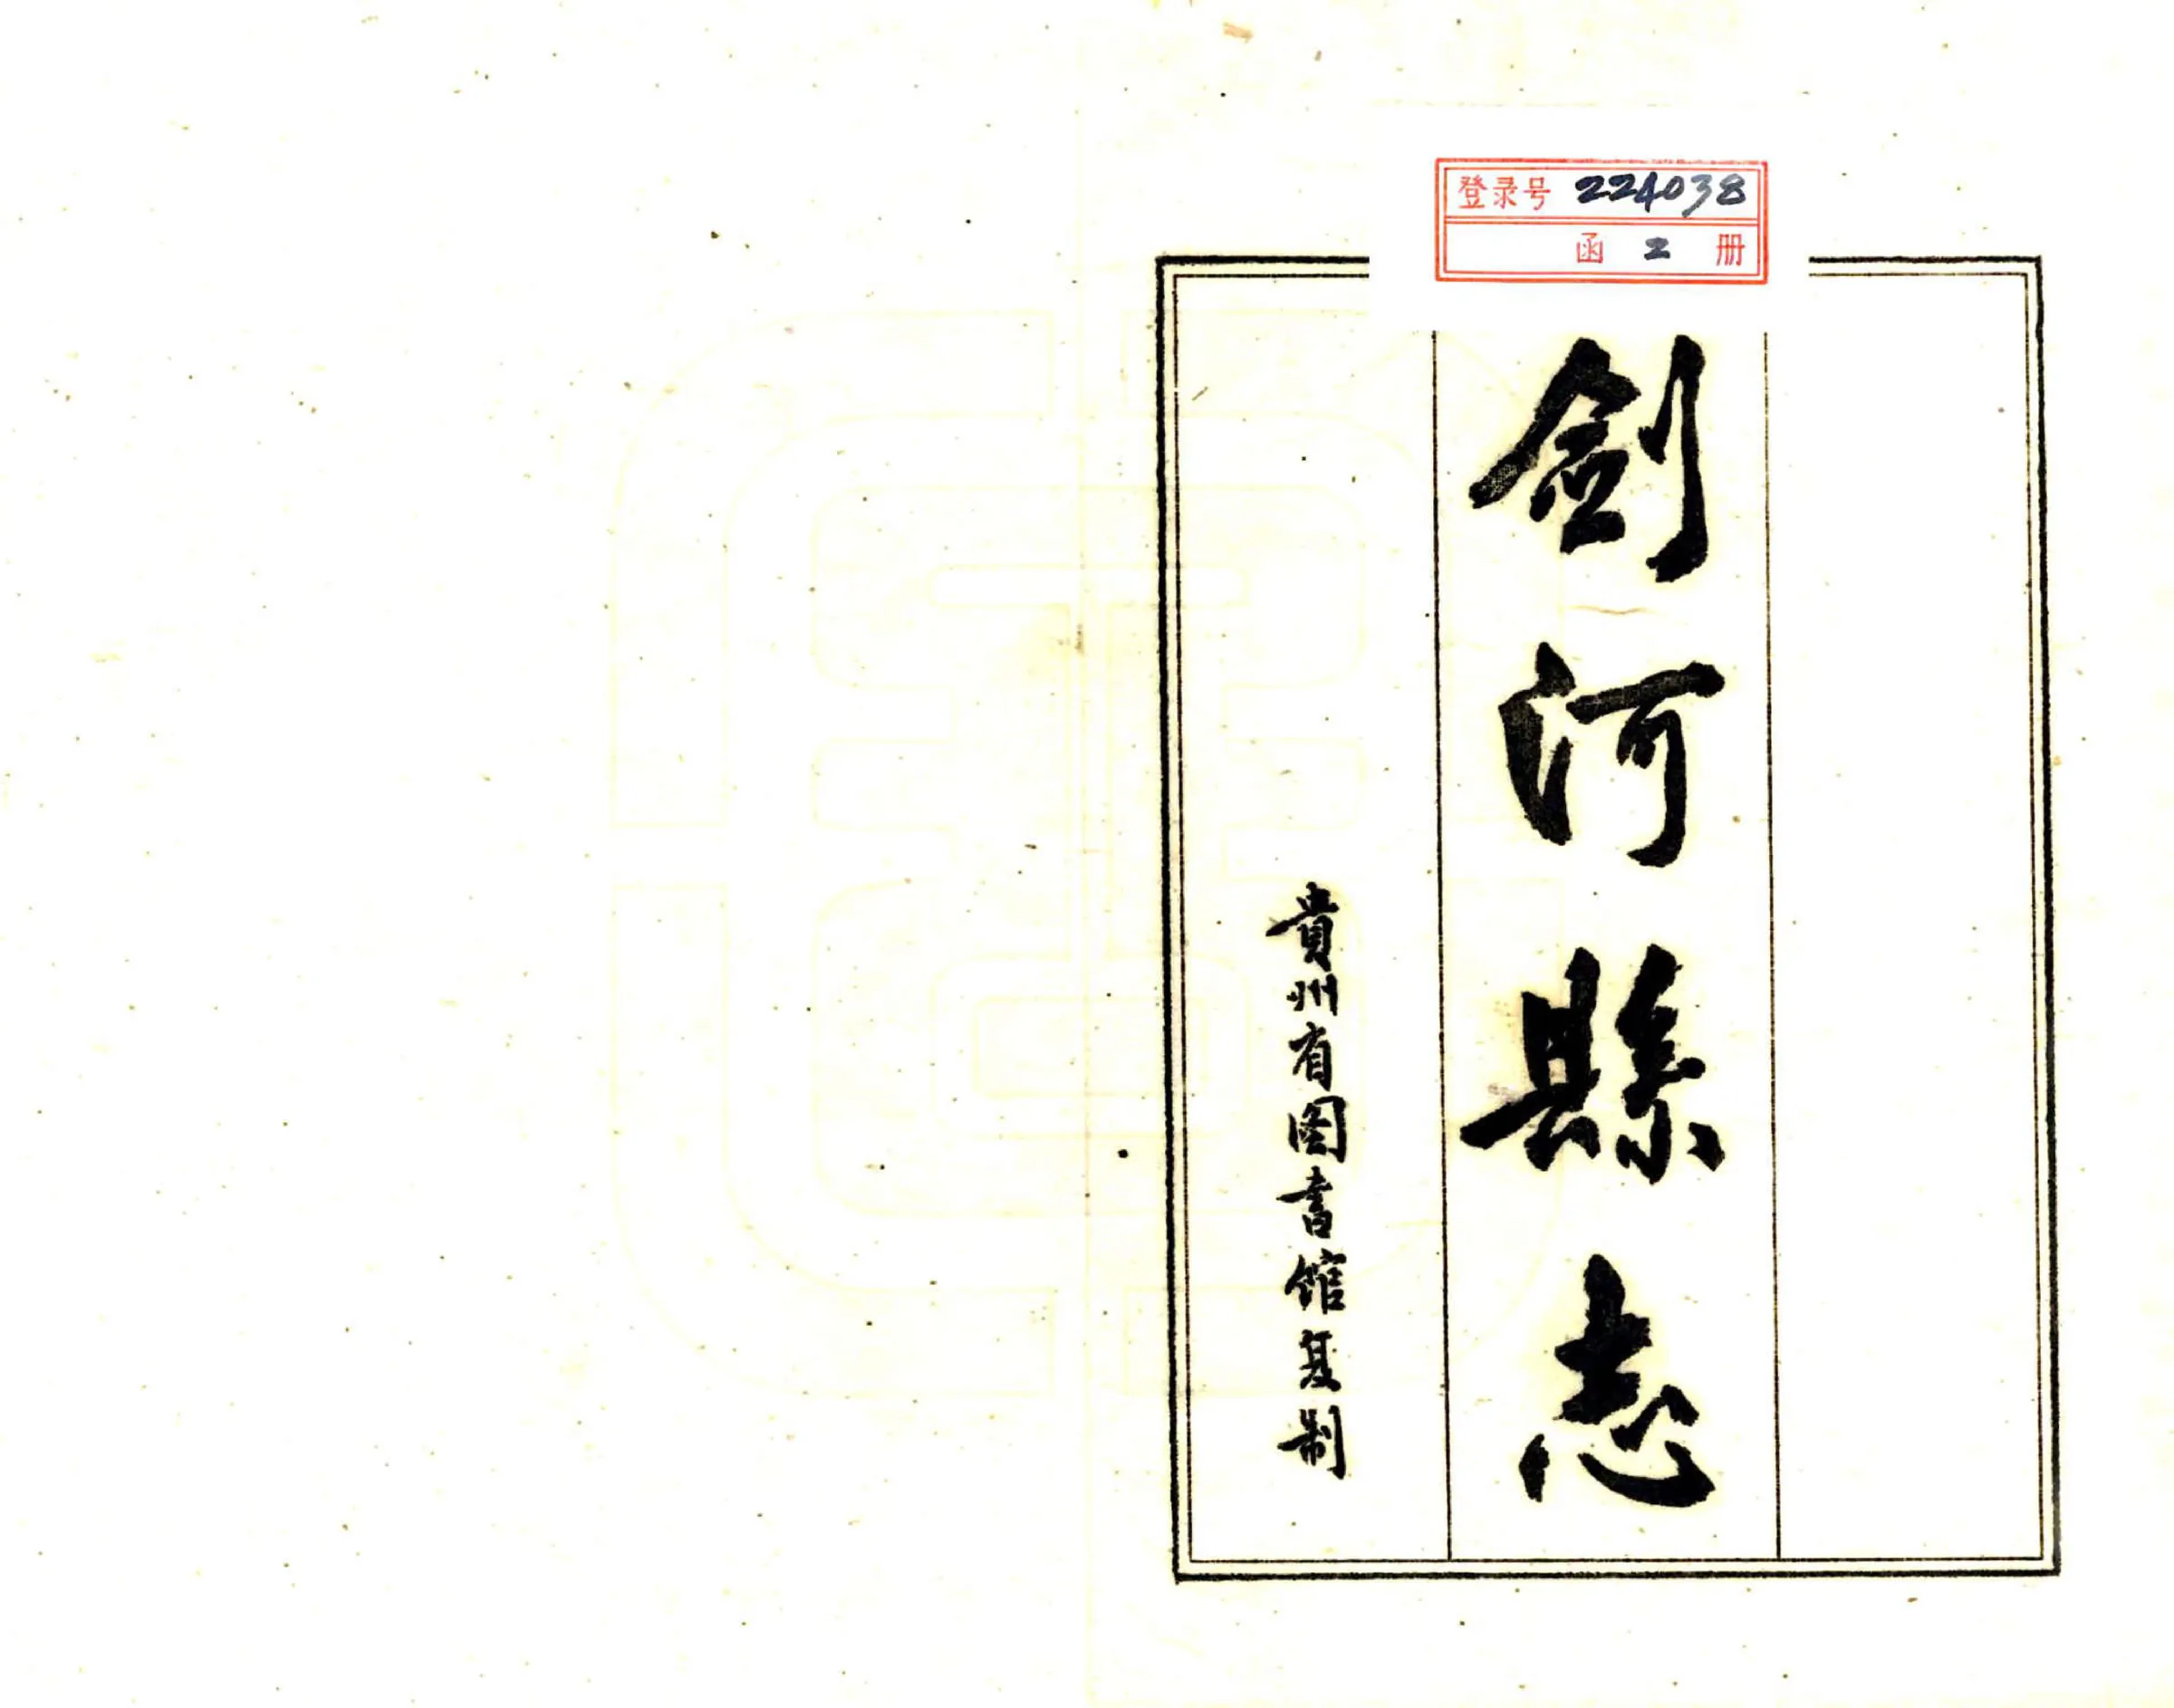 登录号 224038
函 2 册
劍河縣志
貴州省图書館复制